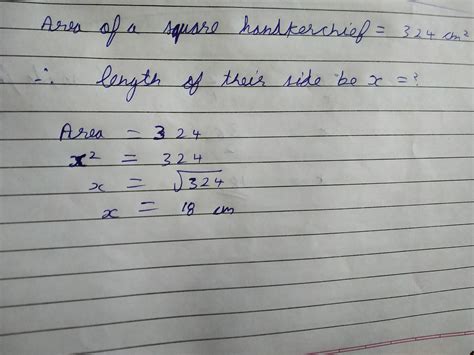 Area of a square handkerchief = 324 cm²
∴ length of their side be x = ?
Area - 324
x² = 324
x = √324
x = 18 cm